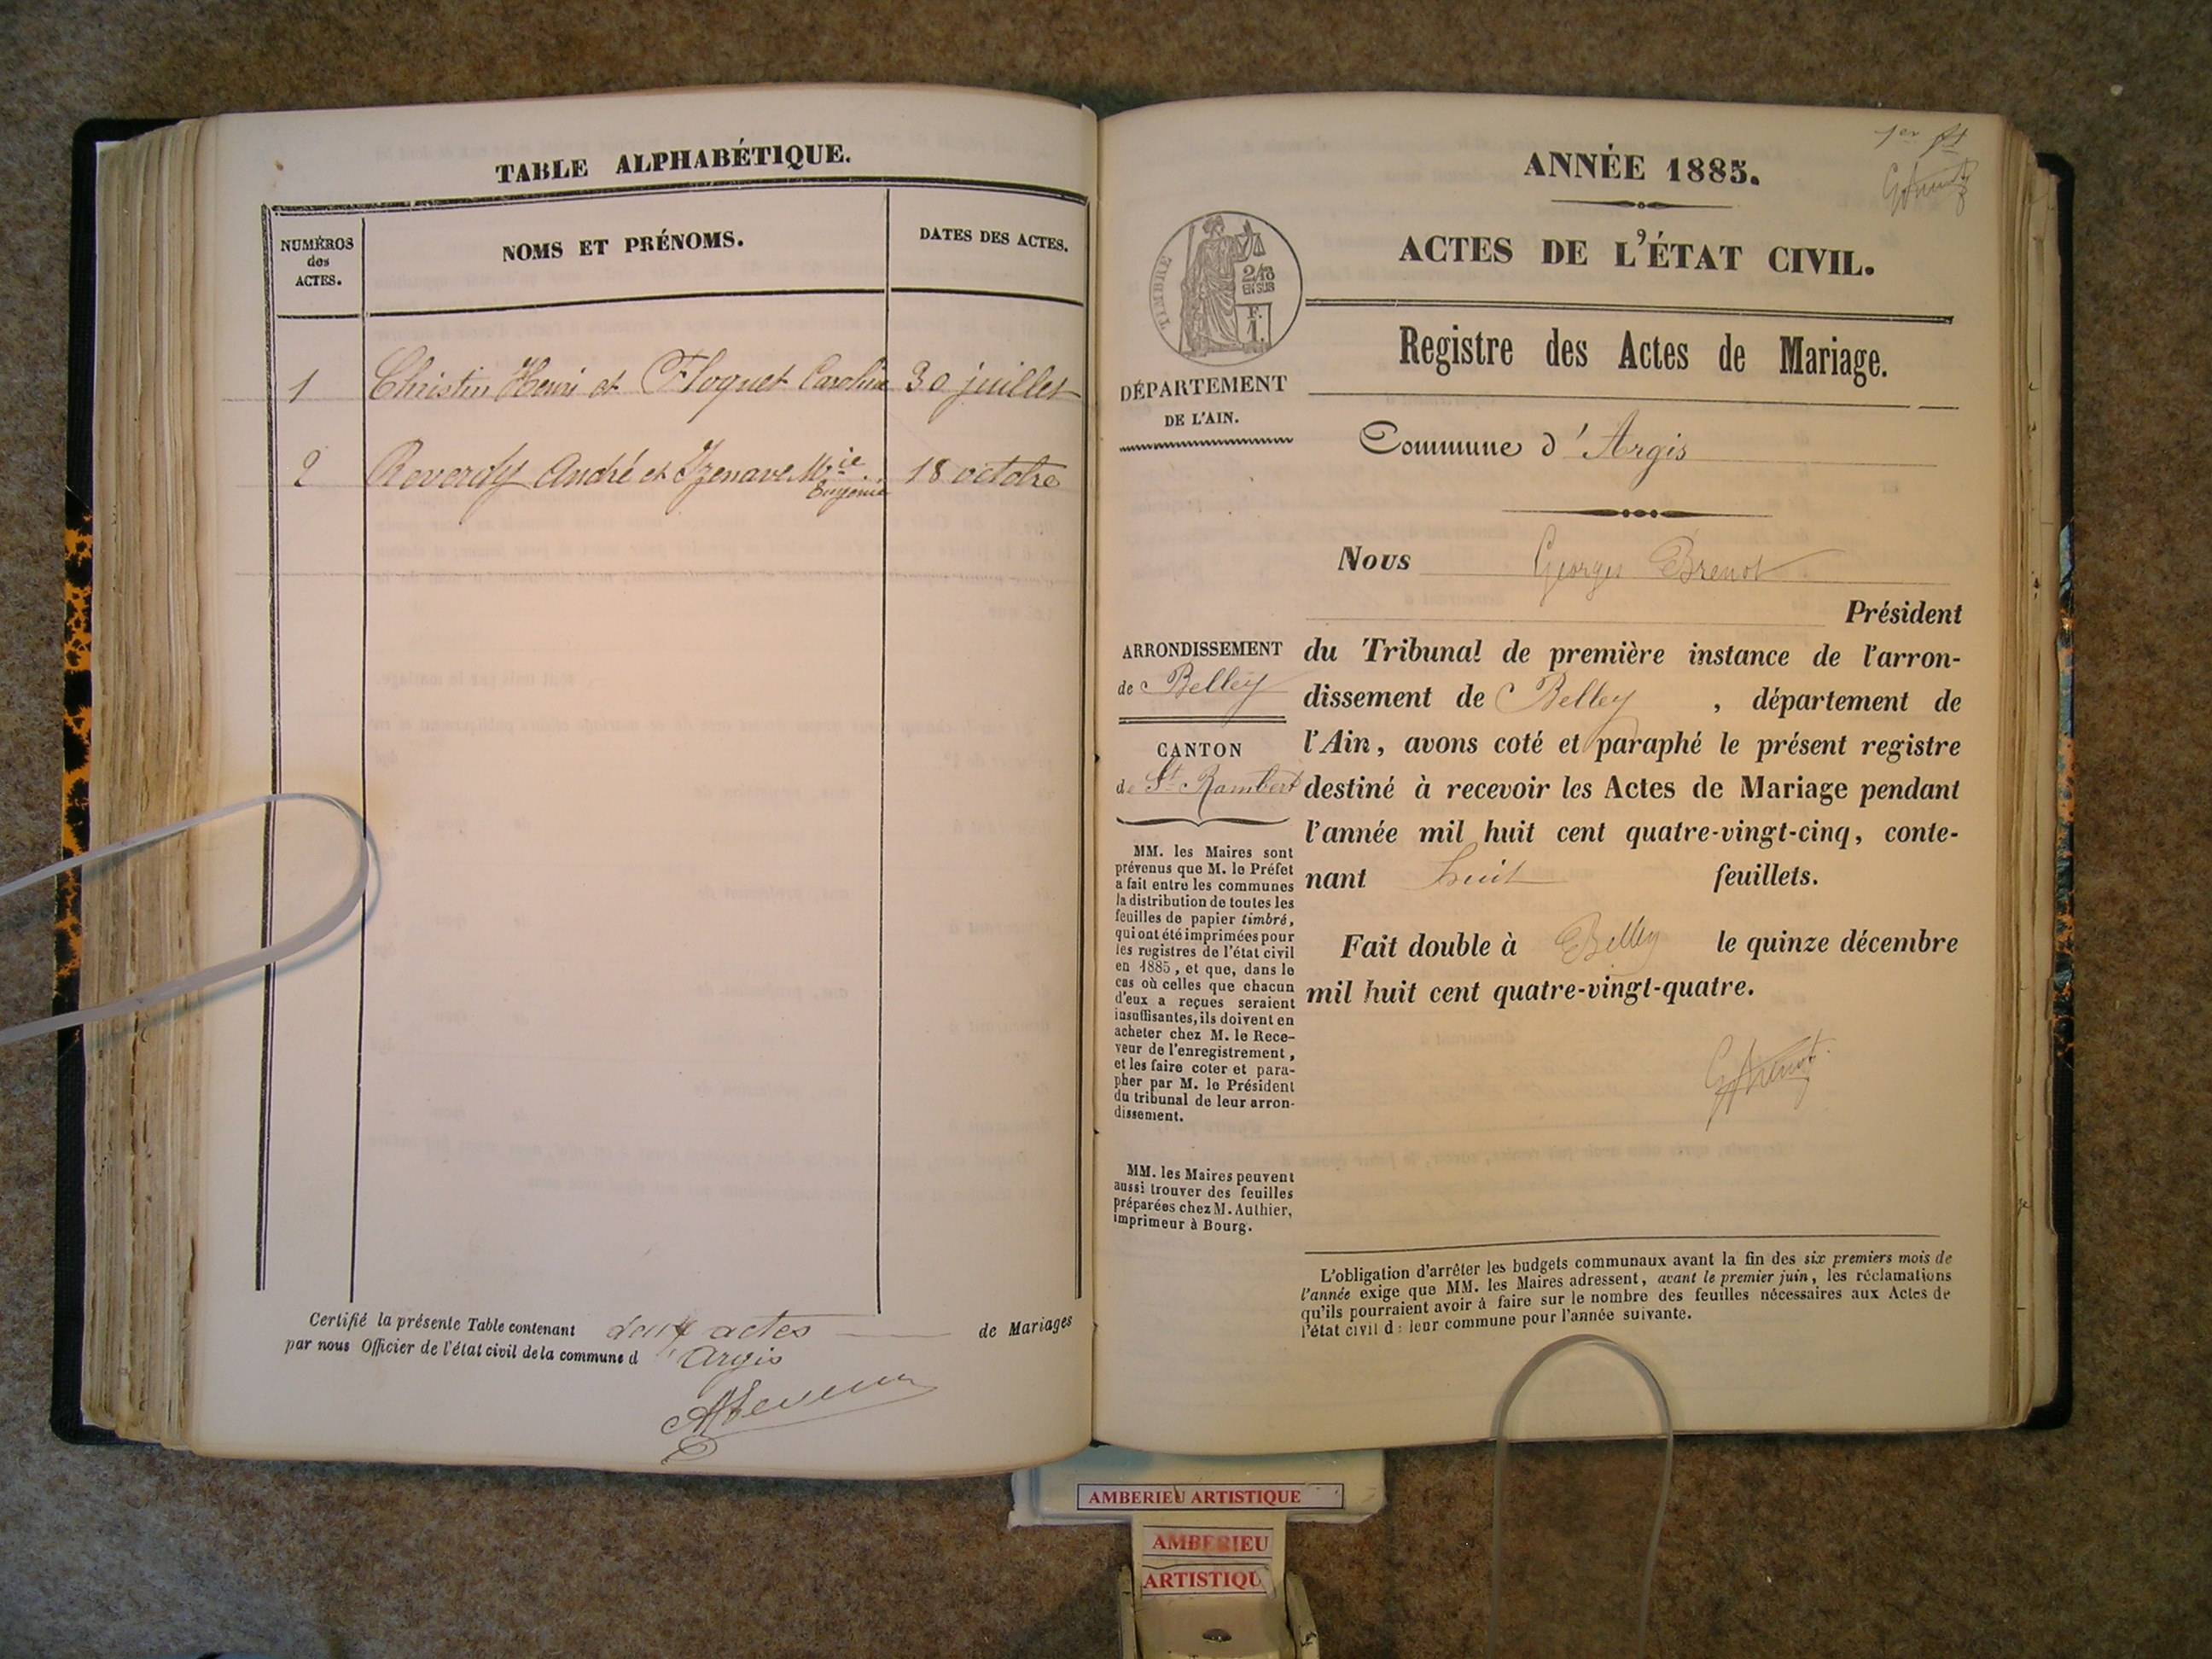 TABLE ALPHABÉTIQUE.
NUMÉROS
des
ACTES.
NOMS ET PRÉNOMS.
DATES DES ACTES.
1 Christin Henri et Floquet Caroline 30 juillet
2 Reverdy André et Izenave Mie 18 octobre
Eugénie
Certifié la présente Table contenant deux actes de Mariages
par nous Officier de l'état civil de la commune d'Argis
1er ft
ANNÉE 1885.
ACTES DE L'ÉTAT CIVIL.
TIMBRE
2/10
EN SUS
F.
1.
Registre des Actes de Mariage.
DÉPARTEMENT
DE L'AIN.
Commune d'Argis
Nous Georges Brenot
Président
ARRONDISSEMENT
de Belley
CANTON
de St Rambert
du Tribunal de première instance de l'arron-
dissement de Belley, département de
l'Ain, avons coté et paraphé le présent registre
destiné à recevoir les Actes de Mariage pendant
l'année mil huit cent quatre-vingt-cinq, conte-
nant huit feuillets.
Fait double à Belley le quinze décembre
mil huit cent quatre-vingt-quatre.
MM. les Maires sont
prévenus que M. le Préfet
a fait entre les communes
la distribution de toutes les
feuilles de papier timbré,
qui ont été imprimées pour
les registres de l'état civil
en 1885, et que, dans le
cas où celles que chacun
d'eux a reçues seraient
insuffisantes, ils doivent en
acheter chez M. le Rece-
veur de l'enregistrement,
et les faire coter et para-
pher par M. le Président
du tribunal de leur arron-
dissement.
MM. les Maires peuvent
aussi trouver des feuilles
préparées chez M. Authier,
imprimeur à Bourg.
L'obligation d'arrêter les budgets communaux avant la fin des six premiers mois de
l'année exige que MM. les Maires adressent, avant le premier juin, les réclamations
qu'ils pourraient avoir à faire sur le nombre des feuilles nécessaires aux Actes de
l'état civil d: leur commune pour l'année suivante.
AMBERIEU ARTISTIQUE
AMBERIEU
ARTISTIQU